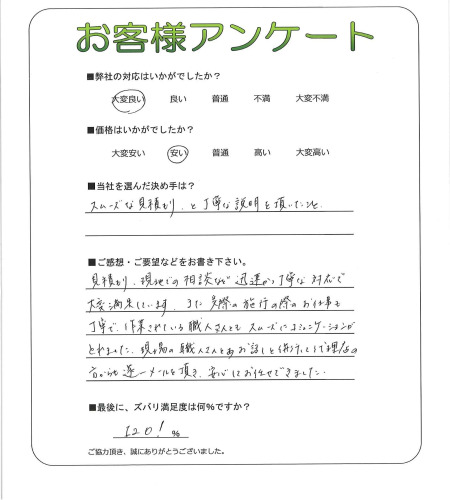 お客様アンケート
■弊社の対応はいかがでしたか？
大変良い 良い 普通 不満 大変不満
■価格はいかがでしたか？
大変安い 安い 普通 高い 大変高い
■当社を選んだ決め手は？
スムーズな見積もり、と丁寧な説明を頂いたこと。
■ご感想・ご要望などをお書き下さい。
見積もり、現地での相談など迅速かつ丁寧な対応で
大変満足しています。また実際の施行の際のお仕事も
丁寧で、作業されている職人さんともスムーズにコミュニケーションが
とれました。現場の職人さんとお話しと並行して
方からも逐一メールを頂き、安心してお任せできました。
■最後に、ズバリ満足度は何%ですか？
120! %
ご協力頂き、誠にありがとうございました。